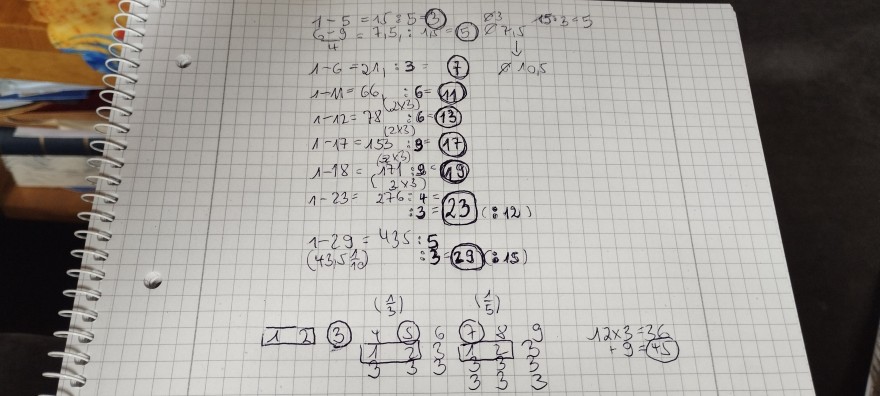 1-5 = 15 : 5 = 3 ø3 15:3=5
6-9 = 7,5, : 1,5 = 5 ø 7,5
4 ↓
1-6 = 21, : 3 = 7 ø 10,5
1-11 = 66, : 6 = 11
(2x3)
1-12 = 78 : 6 = 13
(2x3)
1-17 = 153 : 9 = 17
(3x3)
1-18 = 171 : 9 = 19
( 2x3)
1-23 = 276 : 4 =
: 3 = 23 (:12)
1-29 = 435 : 5
(43,5 1/10) : 3 = 29 (:15)
(1/3) (1/5)
1 2 3 4 5 6 7 8 9 12x3=36
1 2 3 1 2 3 + 9 = 45
3 3 3 3 3 3
3 3 3